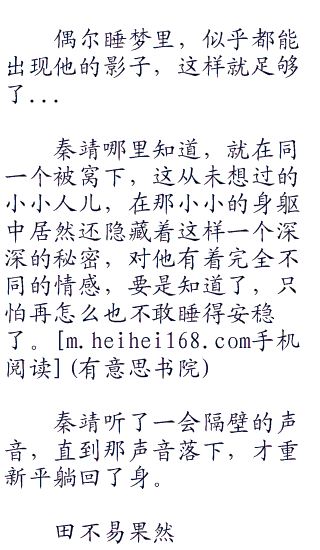 偶尔睡梦里，似乎都能
出现他的影子，这样就足够
了...
秦靖哪里知道，就在同
一个被窝下，这从未想过的
小小人儿，在那小小的身躯
中居然还隐藏着这样一个深
深的秘密，对他有着完全不
同的情感，要是知道了，只
怕再怎么也不敢睡得安稳
了。[m.heihei168.com手机
阅读](有意思书院)
秦靖听了一会隔壁的声
音，直到那声音落下，才重
新平躺回了身。
田不易果然